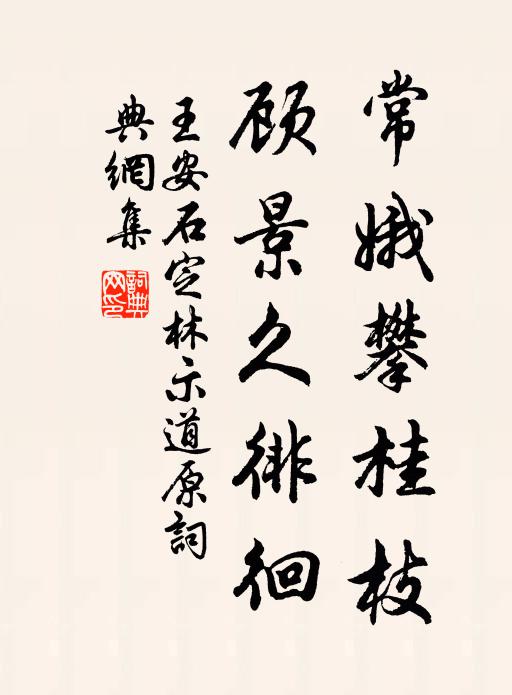 常娥攀桂枝
顾景久徘徊
王安石定林示道原詞
典網集
詞典
网印